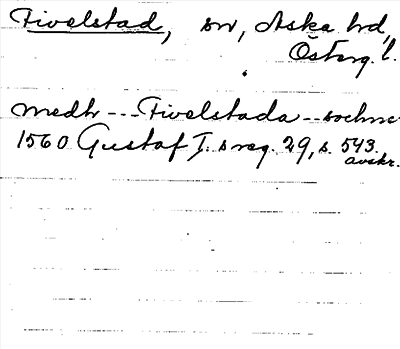 Fivelstad, sn, Aska hd,
Österg. l.
medh --- Fivelstada -- sochne
1560 Gustaf I. s reg. 29, s. 543.
avskr.